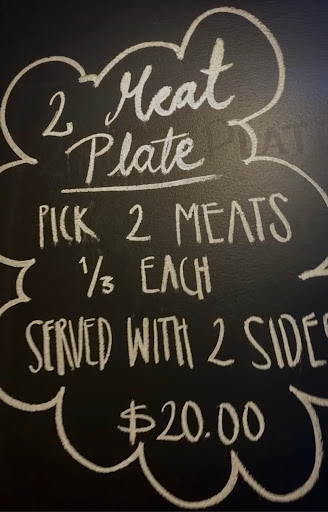 2 Meat
Plate
PICK 2 MEATS
1/3 EACH
SERVED WITH 2 SIDES
$20.00